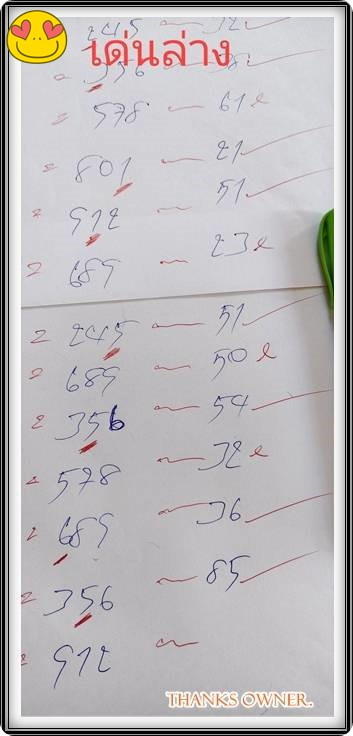 เด่นล่าง
245
356 ~ 38
578 ~ 61
801 ~ 21
912 ~ 51
689 ~ 23
245 ~ 51
689 ~ 50
356 ~ 54
578 ~ 32
689 ~ 36
356 ~ 85
912 ~
THANKS OWNER.